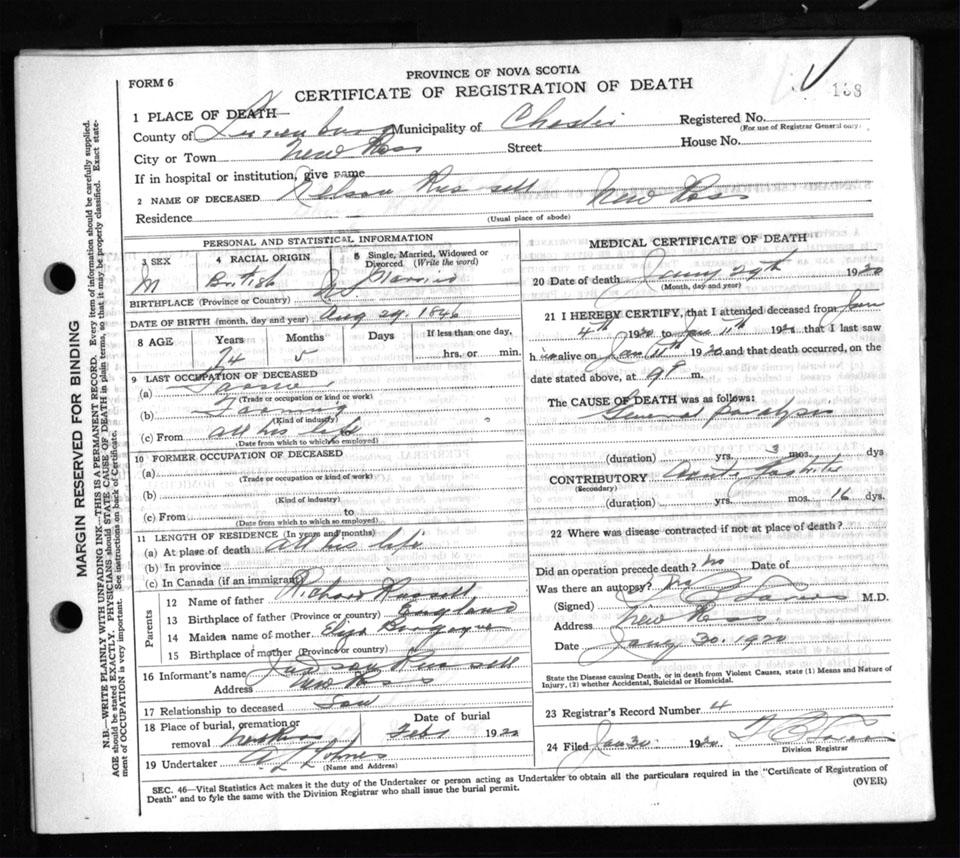 FORM 6
PROVINCE OF NOVA SCOTIA
CERTIFICATE OF REGISTRATION OF DEATH
138
1 PLACE OF DEATH—
County of Lunenburg Municipality of Chester Registered No.
(For use of Registrar General only)
City or Town New Ross Street House No.
If in hospital or institution, give name
2 NAME OF DECEASED Nelson Russell
Residence New Ross
(Usual place of abode)
PERSONAL AND STATISTICAL INFORMATION
3 SEX M
4 RACIAL ORIGIN British
5 Single, Married, Widowed or Divorced (Write the word) Married
BIRTHPLACE (Province or Country)
DATE OF BIRTH (month, day and year) Aug 29, 1846
8 AGE Years Months Days If less than one day,
74 5 hrs. or min.
9 LAST OCCUPATION OF DECEASED
(a) Farmer
(Trade or occupation or kind or work)
(b) Farming
(Kind of industry)
(c) From all his life
(Date from which to which so employed)
10 FORMER OCCUPATION OF DECEASED
(a)
(Trade or occupation or kind of work)
(b)
(Kind of industry)
(c) From to
(Date from which to which so employed)
11 LENGTH OF RESIDENCE (In years and months)
(a) At place of death all his life
(b) In province
(c) In Canada (if an immigrant)
Parents
12 Name of father Richard Russell
13 Birthplace of father (Province or country) England
14 Maiden name of mother
15 Birthplace of mother (Province or country)
16 Informant's name Judson Russell
Address New Ross
17 Relationship to deceased Son
18 Place of burial, cremation or removal New Ross
Date of burial Feb 1 1920
19 Undertaker
(Name and Address)
MEDICAL CERTIFICATE OF DEATH
20 Date of death Jany 29th 1920
(Month, day and year)
21 I HEREBY CERTIFY, that I attended deceased from Jan
4th 1920 to Jan 11th 1920 that I last saw
him alive on Jan 11th 1920 and that death occurred, on the
date stated above, at 9 P m.
The CAUSE OF DEATH was as follows:
General Paralysis
(duration) yrs. 3 mos. dys
CONTRIBUTORY
(Secondary)
(duration) yrs. mos. 16 dys.
22 Where was disease contracted if not at place of death?
Did an operation precede death? No Date of
Was there an autopsy? No
(Signed) M.D.
Address New Ross
Date Jany 30. 1920
State the Disease causing Death, or in death from Violent Causes, state (1) Means and Nature of Injury, (2) whether Accidental, Suicidal or Homicidal.
23 Registrar's Record Number 4
24 Filed Jan 30 1920
Division Registrar
SEC. 46—Vital Statistics Act makes it the duty of the Undertaker or person acting as Undertaker to obtain all the particulars required in the "Certificate of Registration of
Death" and to fyle the same with the Division Registrar who shall issue the burial permit. (OVER)
MARGIN RESERVED FOR BINDING
N.B.—WRITE PLAINLY WITH UNFADING INK—THIS IS A PERMANENT RECORD. Every item of information should be carefully supplied.
AGE should be stated EXACTLY. PHYSICIANS should STATE CAUSE OF DEATH in plain terms, so that it may be properly classified. Exact statement of OCCUPATION is very important. See instructions on back of Certificate.